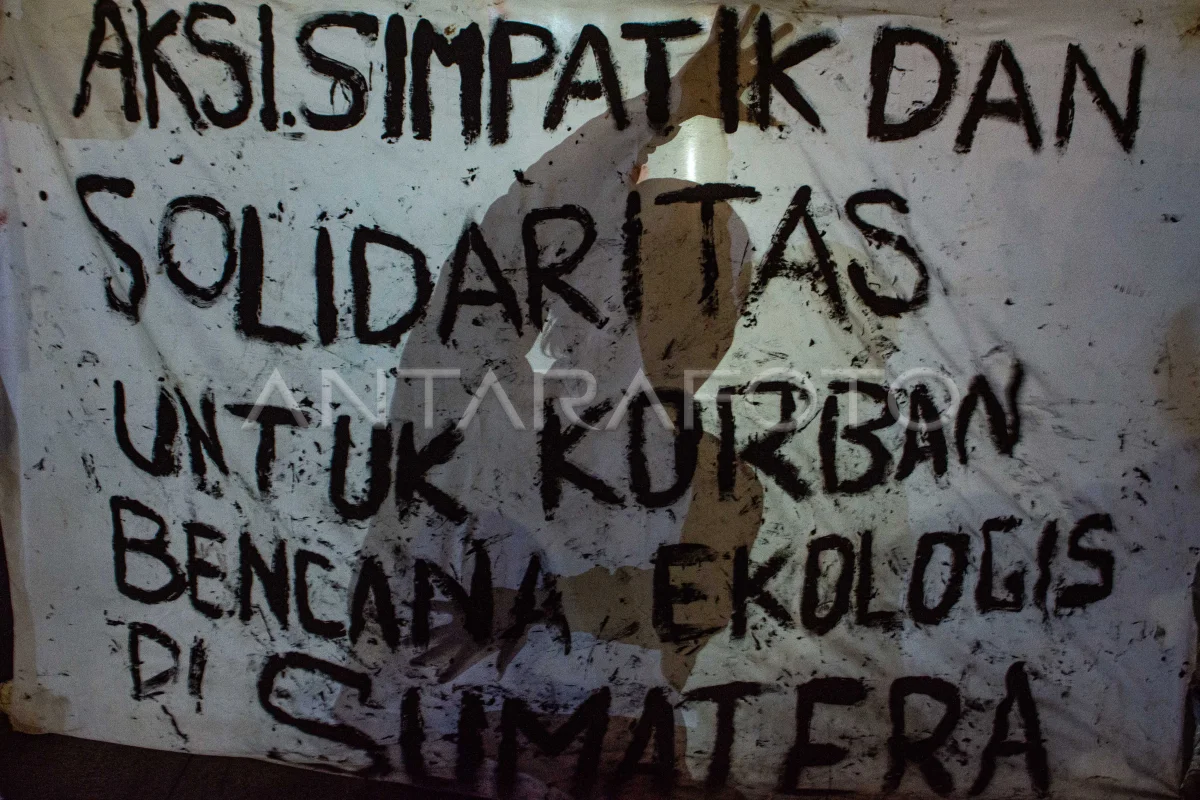 AKSI.SIMPATIK DAN
SOLIDARITAS
UNTUK KORBAN
ANTARAFOTO
BENCANA EKOLOGIS
DI SUMATERA